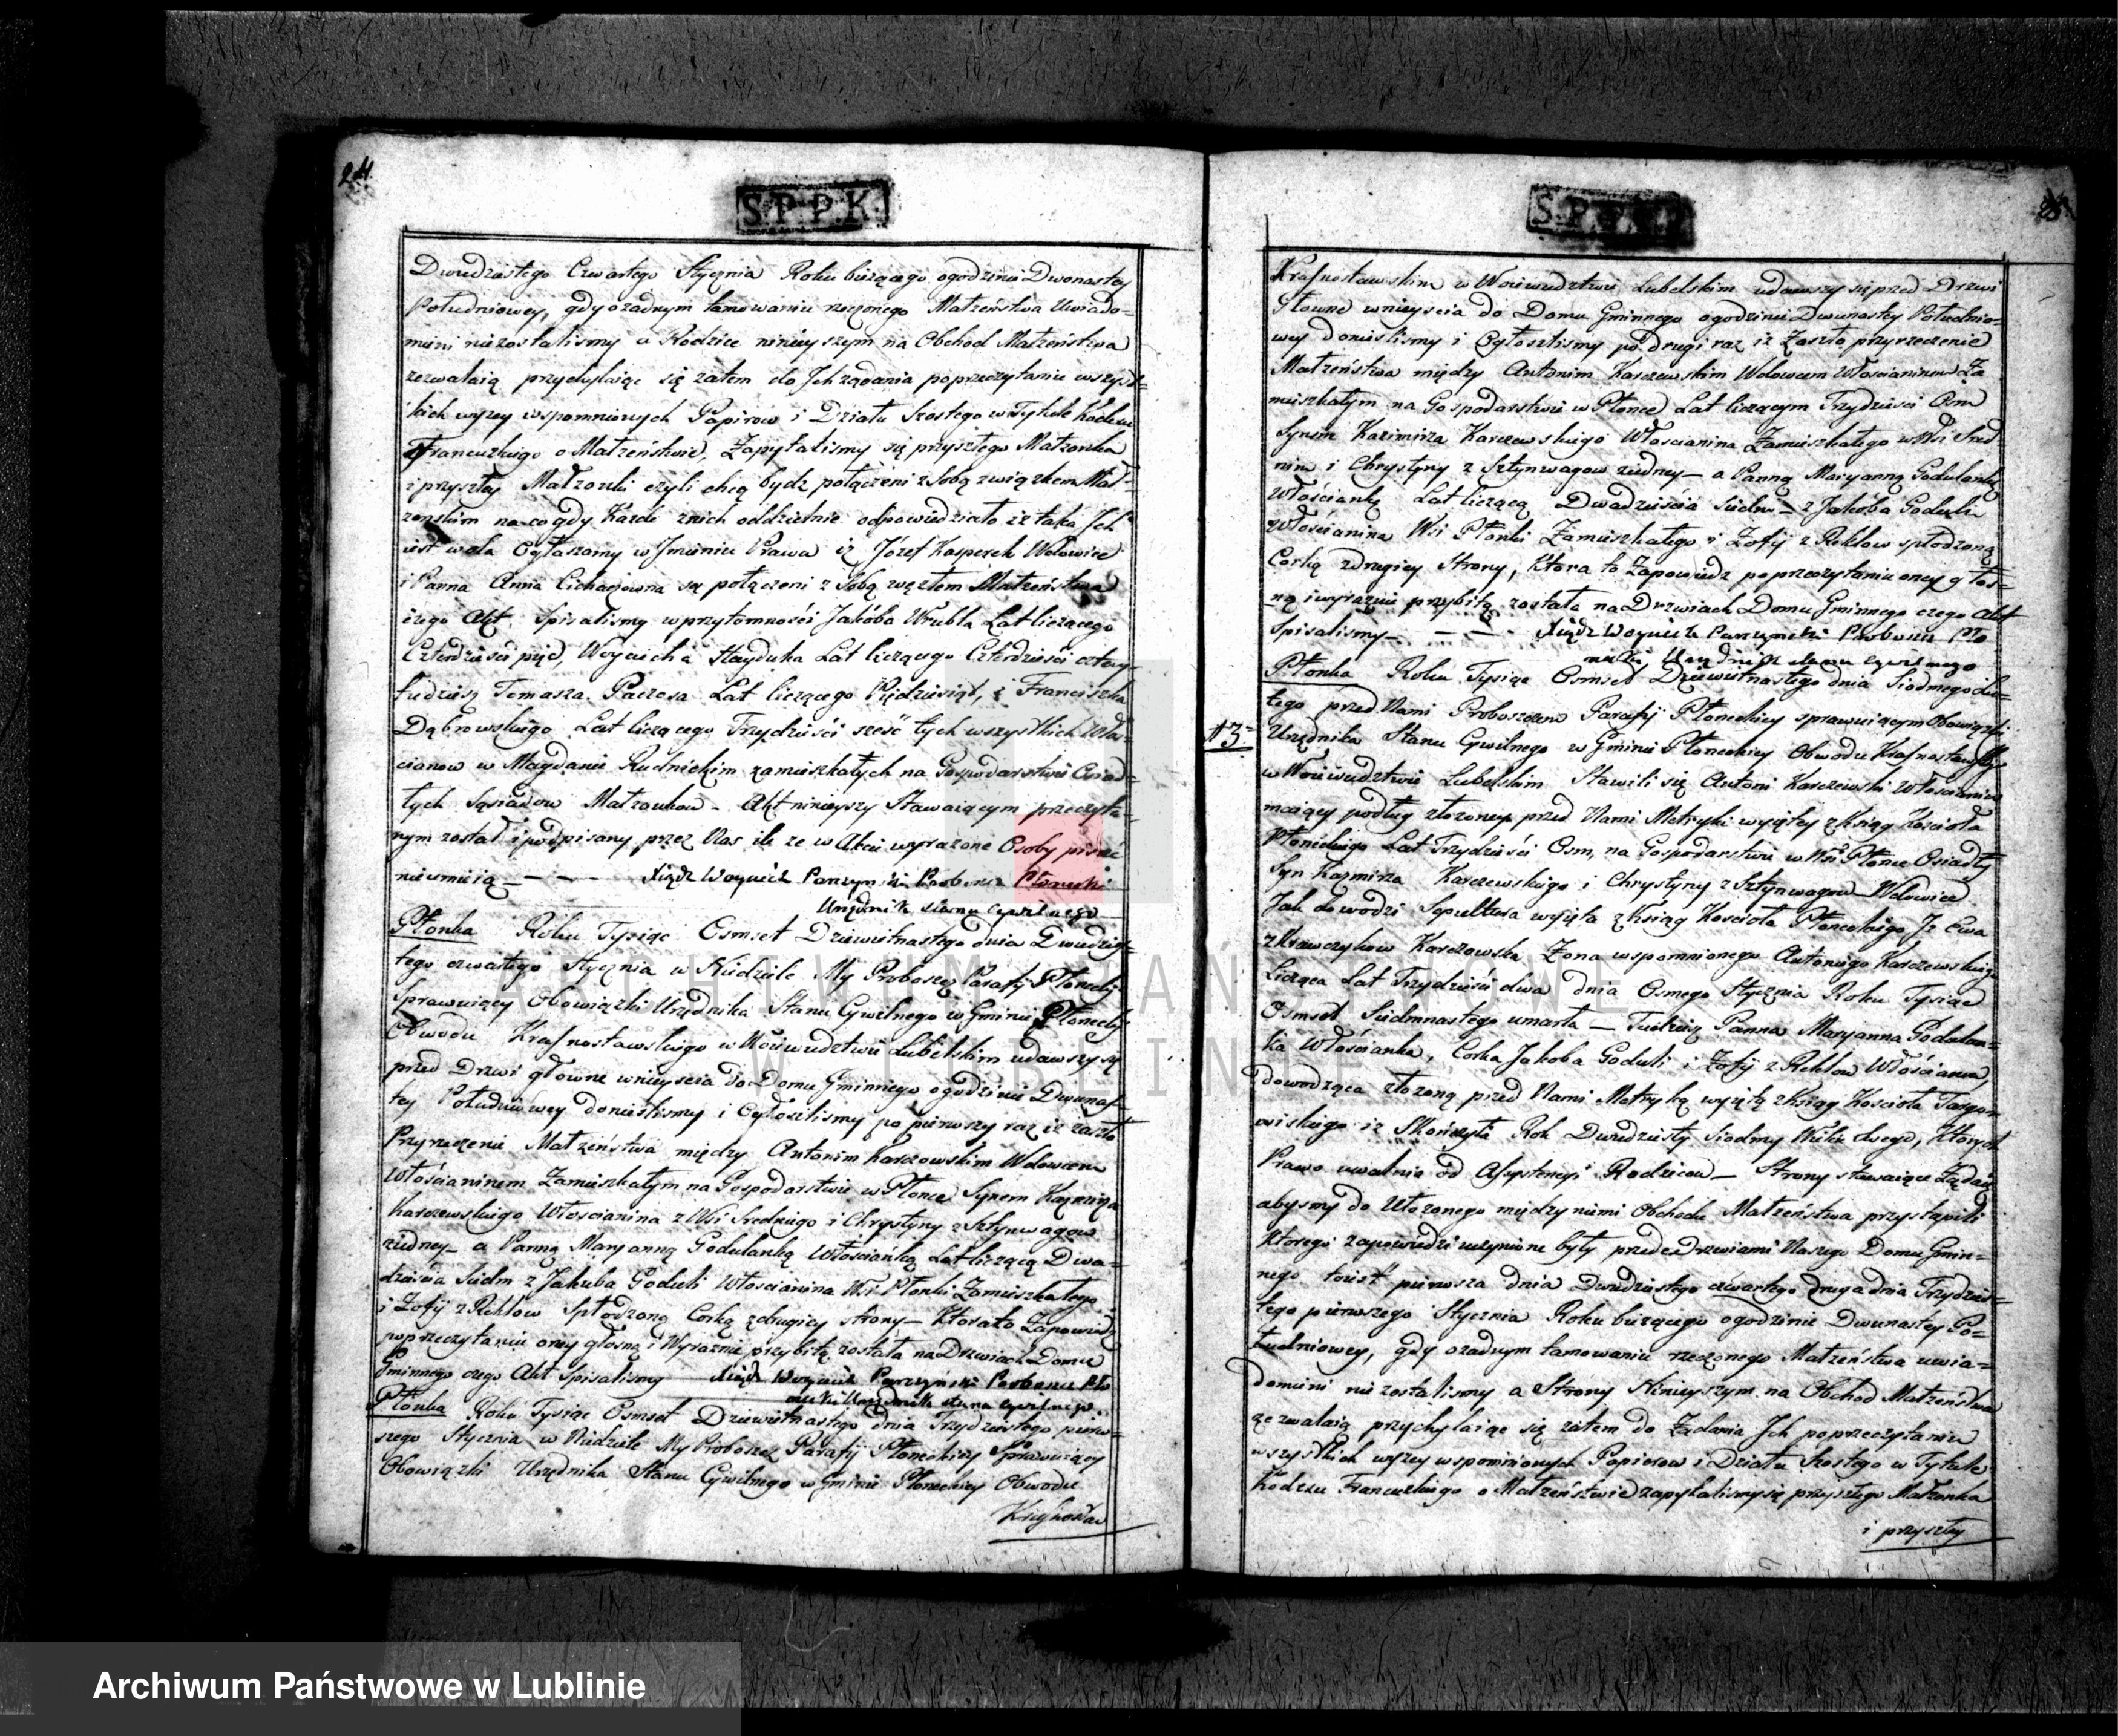 24
S.P.P.K.
Dwudziestego Czwartego Stycznia Roku bieżącego ogodzinie Dwonastey
Południowey, gdy ożadnym tamowaniu rzeczonego Małżeństwa Uwiado-
mieni niezostalismy a Rodzice ninieyszym na Obchod Małżeństwa
zezwalaią przychylaiąc się zatem do Ich żądania poprzeczytaniu wszyst-
kich wyżey wspomnionych Papirow i Działu Szostego w Tytule Kodexu
Francuzkiego o Małżeństwie, Zapytalismy się przyszłego Małżonka
i przyszłey Małżonki czyli chcą bydz połączeni z Sobą związkiem Mał-
żenskim na co gdy Każde znich oddzielnie odpowiedziało iż taka Ich
iest wola Ogłaszamy w Imieniu Prawa iż Józef Kasperek Wdowiec
i Panna Anna Cichaczowna są połączeni z Sobą węzłem Małżeństwa
czego Akt Spisalismy w przytomności Jakóba Wrubla Lat liczącego
Czterdzieści pięć, Woyciecha Hayduka Lat liczącego Czterdzieści cztery
tudziesz Tomasza Paczosa Lat liczącego Pięćdziesiąt, i Franciszka
Dąbrowskiego Lat liczącego Trzydzieści sześć tych wszystkich Włos-
cianow w Magdanie Rudnickim zamieszkałych na Gospodarstwie Osiad-
łych Sąsiadow Małżonkow - Akt ninieyszy Stawaiącym przeczyta-
nym został i podpisany przez Nas ile że w Akcie wyrażone Osoby pisać
nieumieią - - - - Xiądz Woyciech Parzyński Proboszcz Płonecki
Urzędnik stanu cywilnego
Płonka Roku Tysiąc Osmset Dziewietnastego dnia Dwudzies-
tego czwartego Stycznia w Niedziele My Proboszcz Parafij Płoneckiej
Sprawuiący Obowiązki Urzędnika Stanu Cywilnego w Gminie Płoneckiej
Obwodu Krasnostawskiego w Woiewudztwie Lubelskim udawszy się
przed Drzwi głowne wnieyscia do Domu Gminnego ogodzinie Dwunas-
tey Południowey donieslismy i Ogłosilismy po pierwszy raz iż zaszło
Przyrzeczenie Małżeństwa między Antonim Karczewskim Wdowcem
Włościaninem Zamieszkałym na Gospodarstwie w Płonce Synem Kazmirza
Karczewskiego Włoscianina z Wsi Sredniego i Chrystyny z Sztynwagow
ziedney - a Panną Maryanną Godulanką Włościanką Lat liczącą Dwa-
dziescia Siedm z Jakuba Goduli Włoscianina Wsi Płonki Zamieszkałego
i Zofij z Reklow Spłodzoną Corką zdrugiey strony - Ktorato Zapowiedz
poprzeczytaniu oney głosną i Wyraznie przybitą została na Drzwiach Domu
Gminnego czego Akt Spisalismy Xiądz Woyciech Parzyński Proboszcz Pło
necki Urzędnik stanu cywilnego
Płonka Roku Tysiąc Osmset Dziewietnastego dnia Trzydziestego pierw-
szego Stycznia w Niedziele My Proboszcz Parafij Płoneckiey Sprawuiący
Obowiązki Urzędnika Stanu Cywilnego w Gminie Płoneckiey Obwodu
S.P.P.K.
Krasnostawskim w Woiewudztwie Lubelskim udawszy się przed Drzwi
Głowne wnieyscia do Domu Gminnego ogodzinie Dwunastey Południo-
wey donieslismy i Ogłosilismy po drugi raz iż Zaszło przyrzeczenie
Małżeństwa między Antonim Karczewskim Wdowcem Włoscianinem Za
mieszkałym na Gospodarstwie w Płonce Lat liczącym Trzydziesci Osm
Synem Kazimirza Karczewskiego Włoscianina Zamieszkałego w Wsi Sred-
nim i Chrystyny z Sztynwagow ziedney - a Panną Maryanną Godulanką
Włościanką Lat liczącą Dwadzieścia Siedm - z Jakóba Goduli
Włościanina Wsi Płonki Zamieszkałego i Zofij z Reklow spłodzoną
Corką zdrugiey Strony, Ktora to Zapowiedz poprzeczytaniu oney głos-
ną iwyraznie przybitą została na Drzwiach Domu Gminnego czego Akt
Spisalismy - - - - Xiądz Woyciech Parzyński Proboszcz Pło
necki Urzędnik stanu cywilnego
Płonka Roku Tysiąc Osmset Dziewietnastego dnia Siodmego Lu-
tego przed Nami Proboszczem Parafij Płoneckiey sprawuiącym Obowiązki
#3 Urzędnika Stanu Cywilnego w Gminie Płoneckiey Obwodu Krasnostawskiego
w Woiewudztwie Lubelskim Stawili się Antoni Karczewski Włoscianin
maiący podług złożoney przed Nami Metryki wyiętey z Ksiąg Kościoła
Płoneckiego Lat Trzydzieści Osm, na Gospodarstwie w Wsi Płonce Osiadły
Syn Kazmirza Karczewskiego i Chrystyny z Sztynwagow Wdowiec
Jak dowodzi Sepultura wyięta z Ksiąg Kosciola Płoneckiego Iż Ewa
z Krawczykow Karczewska Żona wspomnionego Antoniego Karczewskiego
Licząca Lat Trzydzieści dwa dnia Osmego Stycznia Roku Tysiąc
Osmset Siedmnastego umarła - Tudziesz Panna Maryanna Godulan-
ka Włościanka, Corka Jakoba Goduli i Zofij z Reklow Włościanow,
dowodząca złożoną przed Nami Metryką wyiętą z Ksiąg Kosciola Targo-
wiskiego iż Skończyła Rok Dwudziesty Siodmy Wieku Swego, Ktorych
Prawo uwalnia od Assystencyi Rodzicow - Strony stawaiące Żądaią
abysmy do Ułożonego między niemi Obchodu Małżeństwa przystąpili
Ktorego zapowiedzi uczynione były przede drzwiami Naszego Domu Gmin-
nego toiest pierwsza dnia Dwudziestego czwartego druga dnia Trzydzies-
tego pierwszego Stycznia Roku bieżącego ogodzinie Dwunastey Po-
łudniowey, gdy ożadnym tamowaniu rzeczonego Małżeństwa uwia-
domieni nie zostalismy a Strony Ninieyszym na Obchod Małżeństwa
zezwalaią przychylaiąc się zatem do Żadania Ich poprzeczytaniu
wszystkich wyżey wspomnionych Papierow i Działu Szostego w Tytule
Kodexu Francuzkiego o Małżeństwie zapytalismy się przyszłego Małżonka
i przyszłey
ARCHIWUM PAŃSTWOWE
W LUBLINIE
Archiwum Państwowe w Lublinie